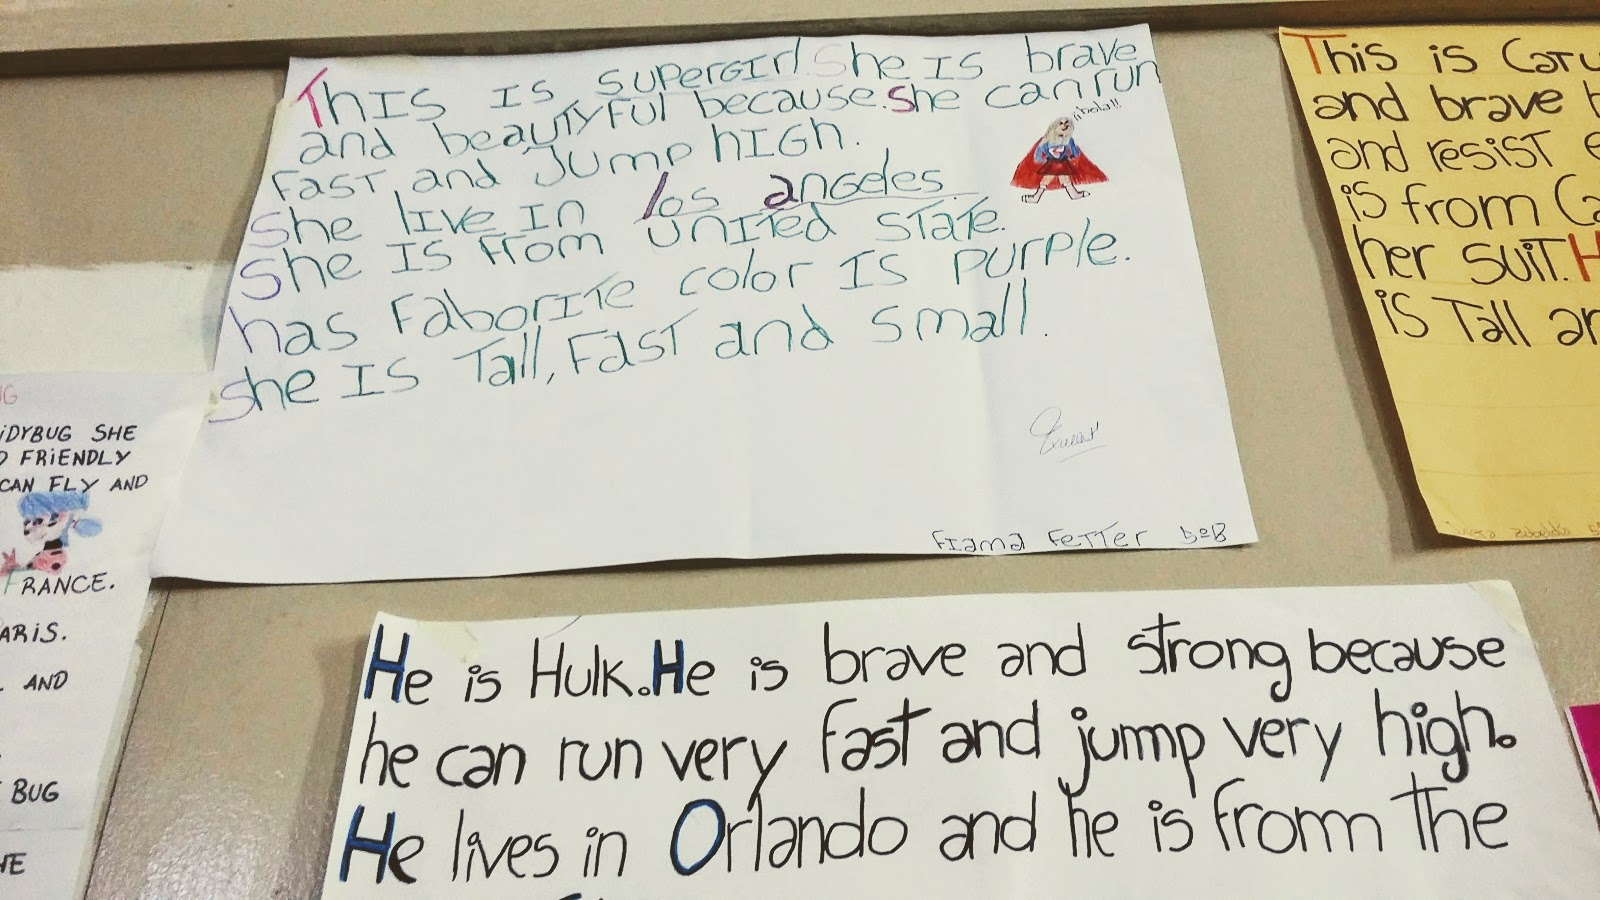 This is supergirl. She is brave
and beautyful because. she can run
fast, and jump high.
she live in los angeles
she is from united state.
has faborite color is purple.
she is Tall, Fast and small.
¡¡hola!!
Fiama Fetter 5ºB
This is
and brave
and resist
is from
her suit. H
is Tall
IDYBUG SHE
FRIENDLY
CAN FLY AND
FRANCE.
ARIS.
AND
BUG
HE
He is Hulk. He is brave and strong because
he can run very fast and jump very high.
He lives in Orlando and he is from the